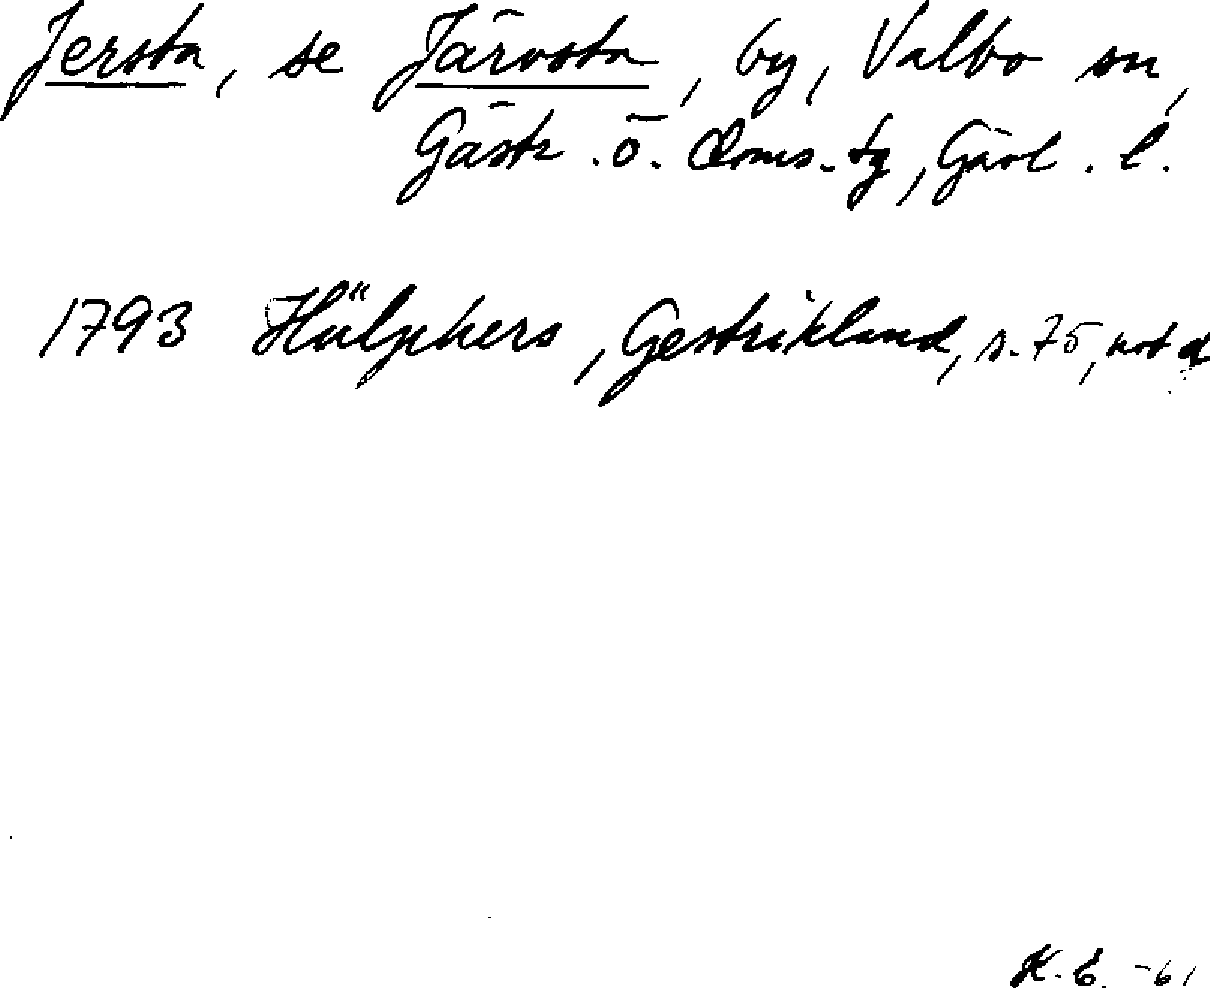 Jersta, se Järvsta, by, Valbo sn,
Gästr. ö. doms. tg, Gävl. l.
1793 Hülphers, Gestrikland, s. 75, not d
K. E. -61